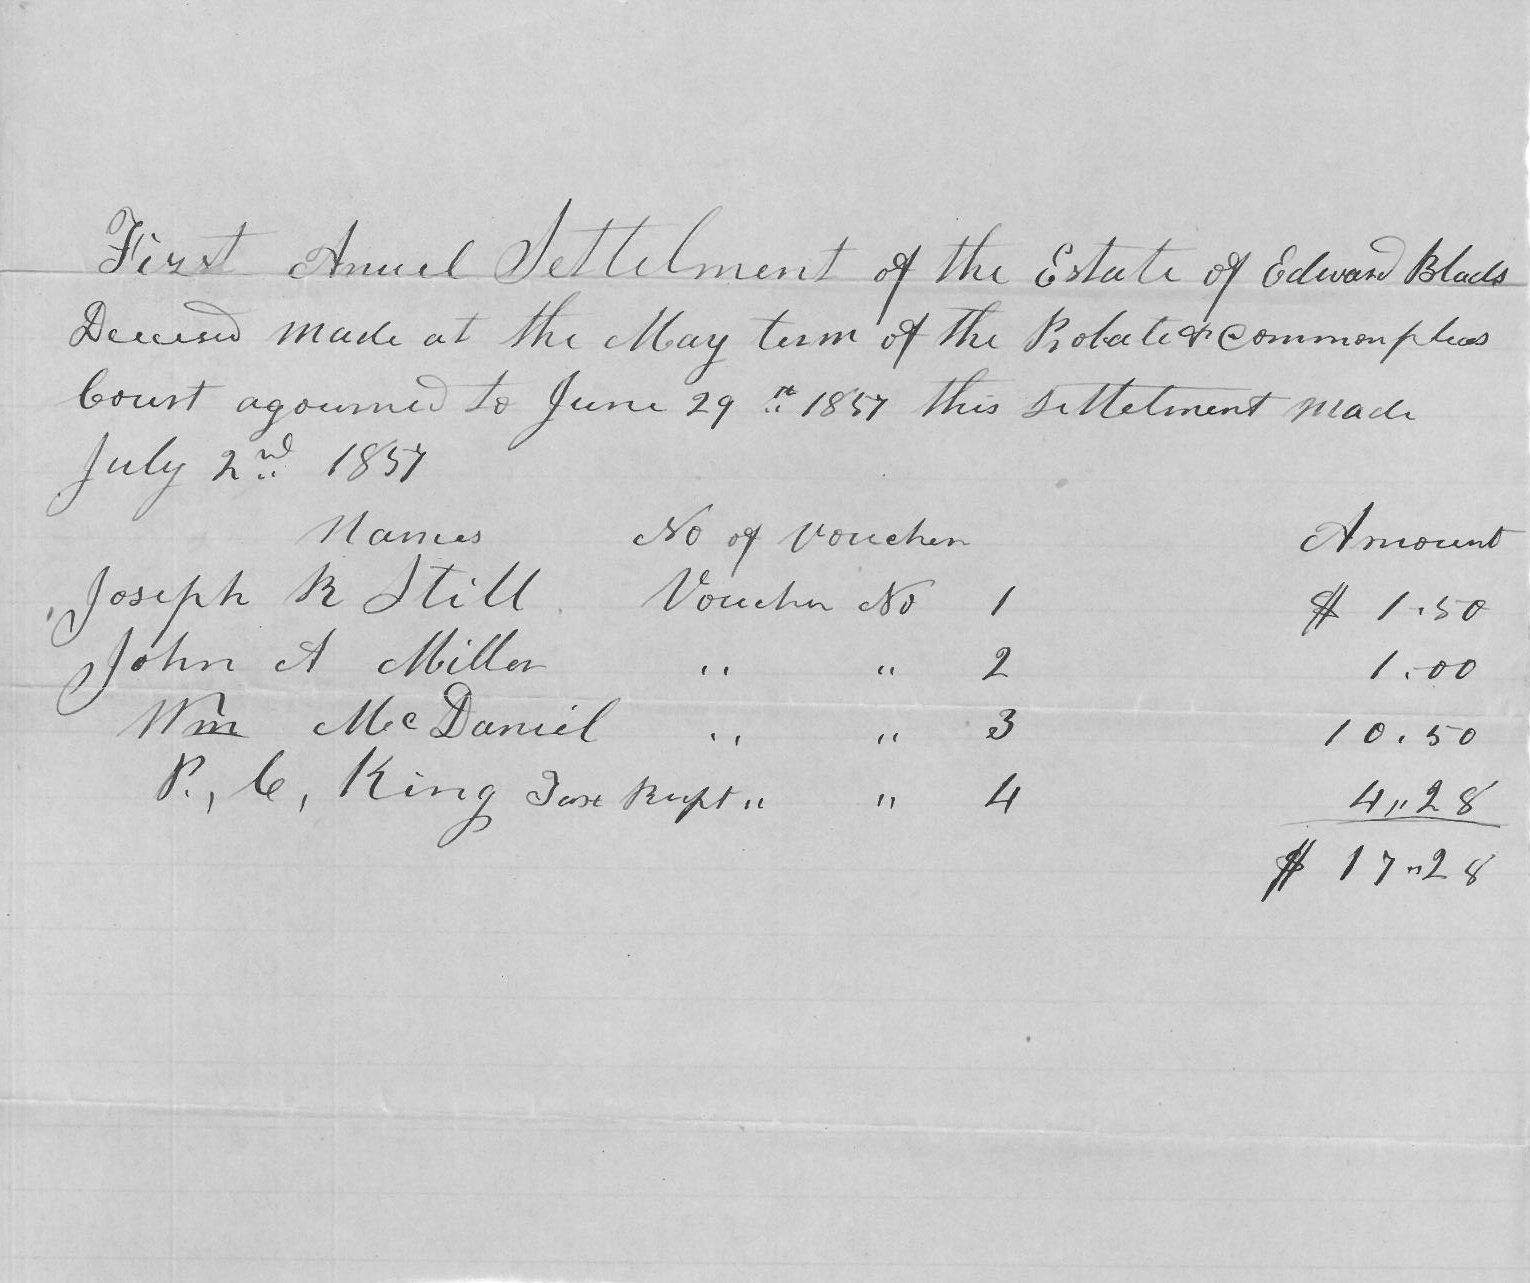 First Anuel Settelment of the Estate of Edward Blads
Decesed made at the May term of the Probate & Commonpleas
Court agourned to June 29th 1857 this settelment made
July 2nd 1857
Names No of Voucher Amount
Joseph R Still Voucher No 1 $ 1.50
John A Miller " " 2 1.00
Wm McDaniel " " 3 10.50
P., C, King Tax Recpt " " 4 4"28
$ 17"28